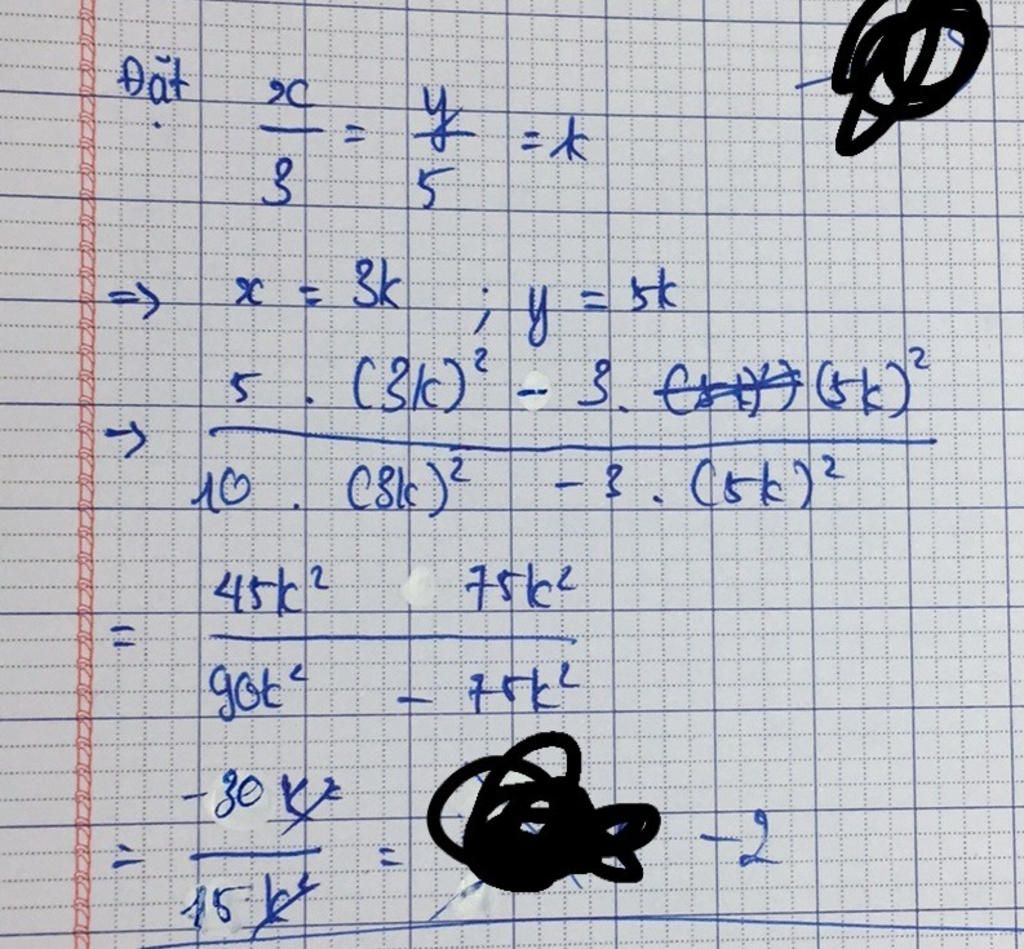 Đặt x/3 = y/5 = k
=> x = 3k ; y = 5k
-> 5 . (3k)² - 3 . (5k)² / 10 . (3k)² - 3 . (5k)²
= 45k² 75k² / 90k² - 75k²
= -30k² / 15k² = -2